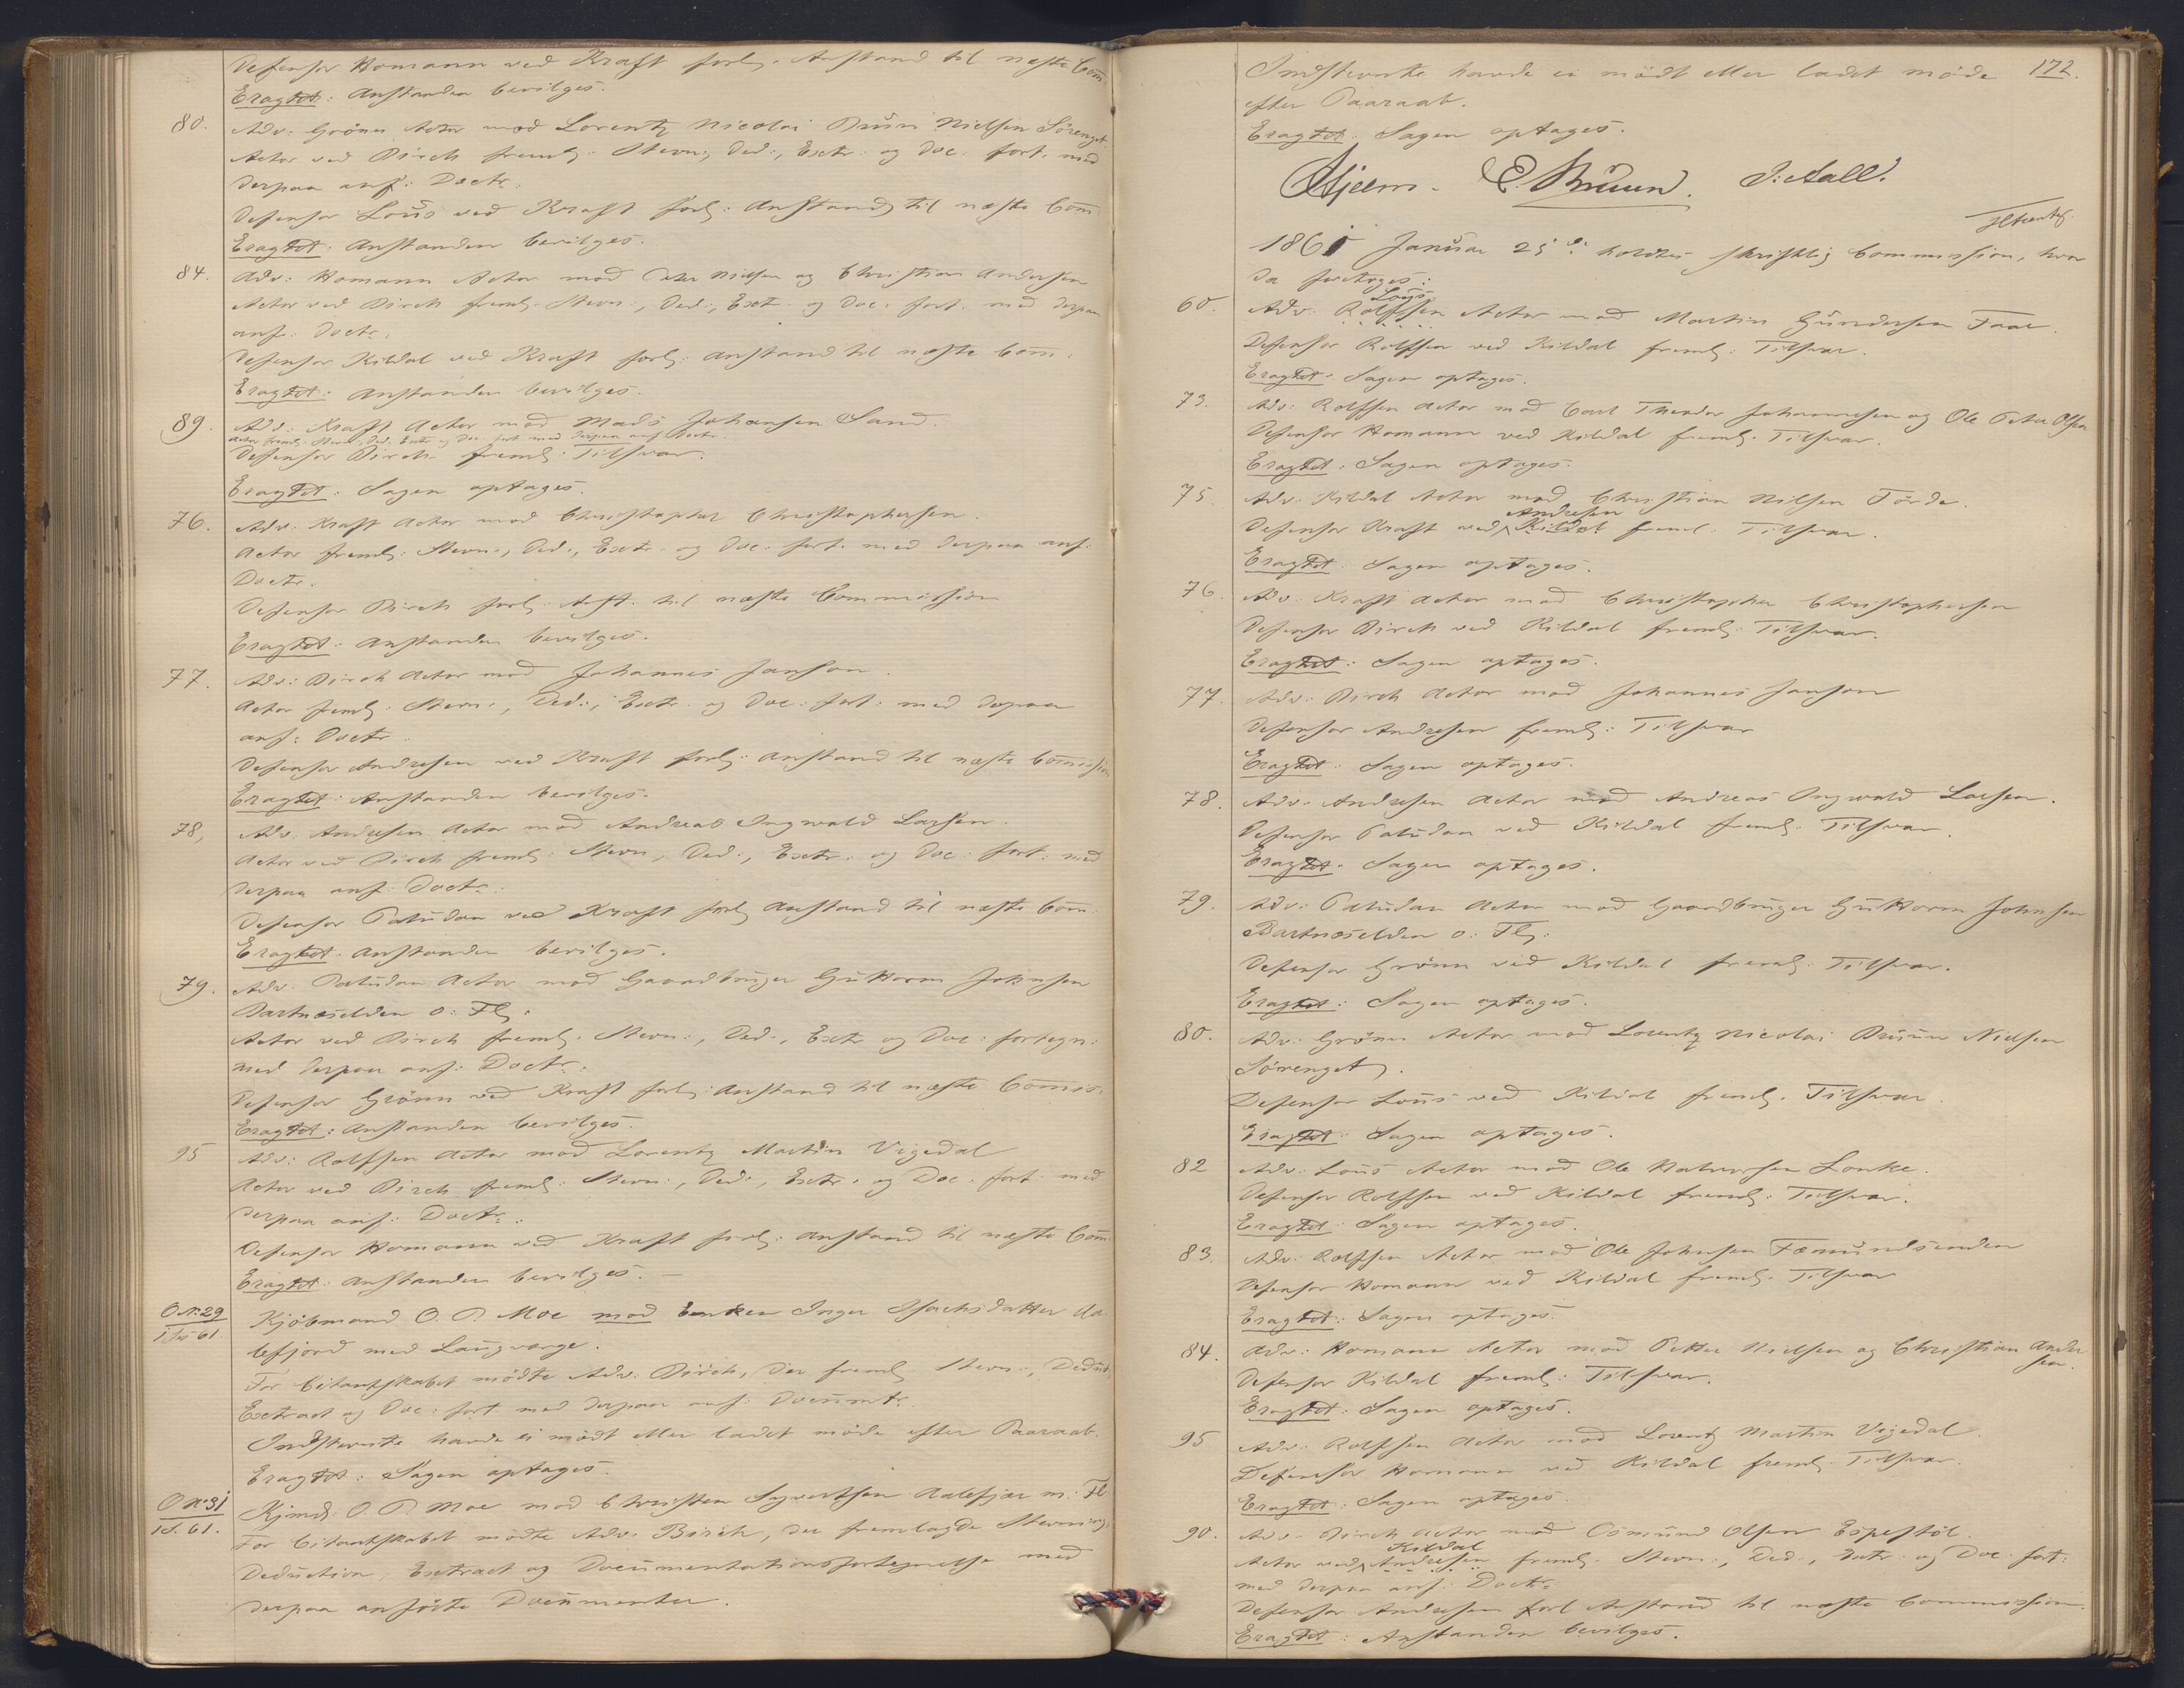 Defensor Homann ved Kraft forl. Anstand til næste Com̅
Eragtet: Anstanden bevilges.
80. Adv: Grönn Actor mod Lorentz Nicolai Bruun Nielsen Sörenget
Actor ved Birch freml. Stevn:, Ded:, Extr. og Doc. fort. med
derpaa anf: Doctr.
Defensor Lous ved Kraft forl: Anstand til næste Com̅.
Eragtet: Anstanden bevilges.
84. Adv: Homann Actor mod Peter Nielsen og Christian Andersen
Actor ved Birch freml. Stevn:, Ded:, Extr. og Doc. fort. med derpaa
anf: Doctr.
Defensor Kildal ved Kraft forl: Anstand til næste Com̅:
Eragtet: Anstanden bevilges.
89. Adv: Kraft Actor mod Mads Johansen Sand.
Actor freml. Stevn:, Ded. Extr og Doc. fort med derpaa anf. Doctr.
Defensor Birch freml: Tilsvar.
Eragtet: Sagen optages.
76. Adv: Kraft Actor mod Christopher Christophersen.
Actor freml: Stevn:, Ded:, Extr. og Doc. fort. med derpaa anf:
Doctr.
Defensor Birch forl. Anst. til næste Commission
Eragtet: Anstanden bevilges.
77. Adv: Birch Actor mod Johannes Janson.
Actor freml: Stevn:, Ded:, Extr. og Doc: fort: med derpaa
anf: Doctr.
Defensor Andresen ved Kraft forl: Anstand til næste Com̅ission
Eragtet: Anstanden bevilges.
78, Adv. Andresen Actor mod Andreas Ingwald Larsen.
Actor ved Birch freml: Stevn, Ded:, Extr: og Doc: fort: med
derpaa anf: Doctr:
Defensor Paludan ved Kraft forl. Anstand til næste Com̅.
Eragtet. Anstanden bevilges.
79. Adv. Paludan Actor mod Gaardbruger Guttorm Johnsen
Bartnæselden o: Fl:
Actor ved Birch freml. Stevn:, Ded:, Extr og Doc: fortegn:
med derpaa anf: Doctr:
Defensor Grönn ved Kraft forl: Anstand til næste Com̅is.
Eragtet: Anstanden bevilges.
95 Adv: Rolfsen Actor mod Lorentz Martin Vigedal
Actor ved Birch freml: Stevn:, Ded:, Extr: og Doc. fort. med
derpaa anf: Doctr:
Defensor Homann ved Kraft forl: Anstand til næste Com̅
Eragtet: Anstanden bevilges. —
O No. 29 / 1 S. 61 Kjöbmand O. P. Moe mod Enken Inger Isachsdatter Aa-
lefjord med Laugværge.
For Citantskabet mödte Adv. Birch, der freml Stevn:, Deduct,
Extract og Doc: fort. med derpaa anf: Documtr.
Indstevnte havde ei mödt eller ladet möde efter Paaraab.
Eragtet: Sagen optages.
O No. 31 / 1 S. 61. Kjmd: O. P. Moe mod Christen Syvertsen Aalefjær m. Fl.
For Citantskabet mödte Adv. Birch, der fremlagde Stevning,
Deduction, Extract og Documentationsfortegnelse med
derpaa anförte Documenter.
172.
Indstevnte havde ei mödt eller ladet möde
efter Paaraab.
Eragtet. Sagen optages.
Hjelm. E. Bruun. J: Aall.
1861 Januar 25de holdtes skriftlig Commission, hvor
da foretoges:
60. Adv. Rolfsen Lous Actor mod Martin Gundersen Taar.
Defensor Rolfsen ved Kildal freml: Tilsvar.
Eragtet. Sagen optages.
73. Adv: Rolfsen Actor mod Carl Theodor Johannesen og Ole Peter Olsen
Defensor Homann ved Kildal freml. Tilsvar.
Eragtet: Sagen optages.
75. Adv. Kildal Actor mod Christian Nilsen Förde.
Defensor Kraft ved Kildal Andresen freml: Tilsvar.
Eragtet. Sagen optages.
76. Adv. Kraft Actor mod Christopher Christophersen
Defensor Birch ved Kildal freml: Tilsvar.
Eragtet: Sagen optages.
77. Adv: Birch Actor mod Johannes Janson
Defensor Andresen freml: Tilsvar
Eragtet: Sagen optages.
78. Adv. Andresen Actor mod Andreas Ingwald Larsen.
Defensor Paludan ved Kildal freml. Tilsvar.
Eragtet. Sagen optages.
79. Adv: Paludan Actor mod Gaardbruger Guttorm Johnsen
Bartnæselden o: Fl:
Defensor Grönn ved Kildal freml. Tilsvar.
Eragtet: Sagen optages.
80. Adv: Grönn Actor mod Lorentz Nicolai Bruun Nielsen
Sörenget.
Defensor Lous ved Kildal freml. Tilsvar.
Eragtet: Sagen optages.
82 Adv: Lous Actor mod Ole Halvorsen Lonke.
Defensor Rolfsen ved Kildal freml: Tilsvar.
Eragtet: Sagen optages.
83. Adv: Rolfsen Actor mod Ole Johnsen Fæmundsenden
Defensor Homann ved Kildal freml. Tilsvar
Eragtet: Sagen optages.
84. Adv: Homann Actor mod Petter Nielsen og Christian Ander
sen.
Defensor Kildal freml: Tilsvar.
Eragtet: Sagen optages.
95 Adv: Rolfsen Actor mod Lorentz Martin Vigedal.
Defensor Homann ved Kildal freml. Tilsvar.
Eragtet: Sagen optages.
90. Adv. Birch Actor mod Osmund Olsen Espestöl.
Actor ved Andresen Kildal freml. Stevn:, Ded., Extr. og Doc. fort:
med derpaa anf: Doctr:
Defensor Andresen forl Anstand til næste Commission.
Eragtet: Anstanden bevilges.